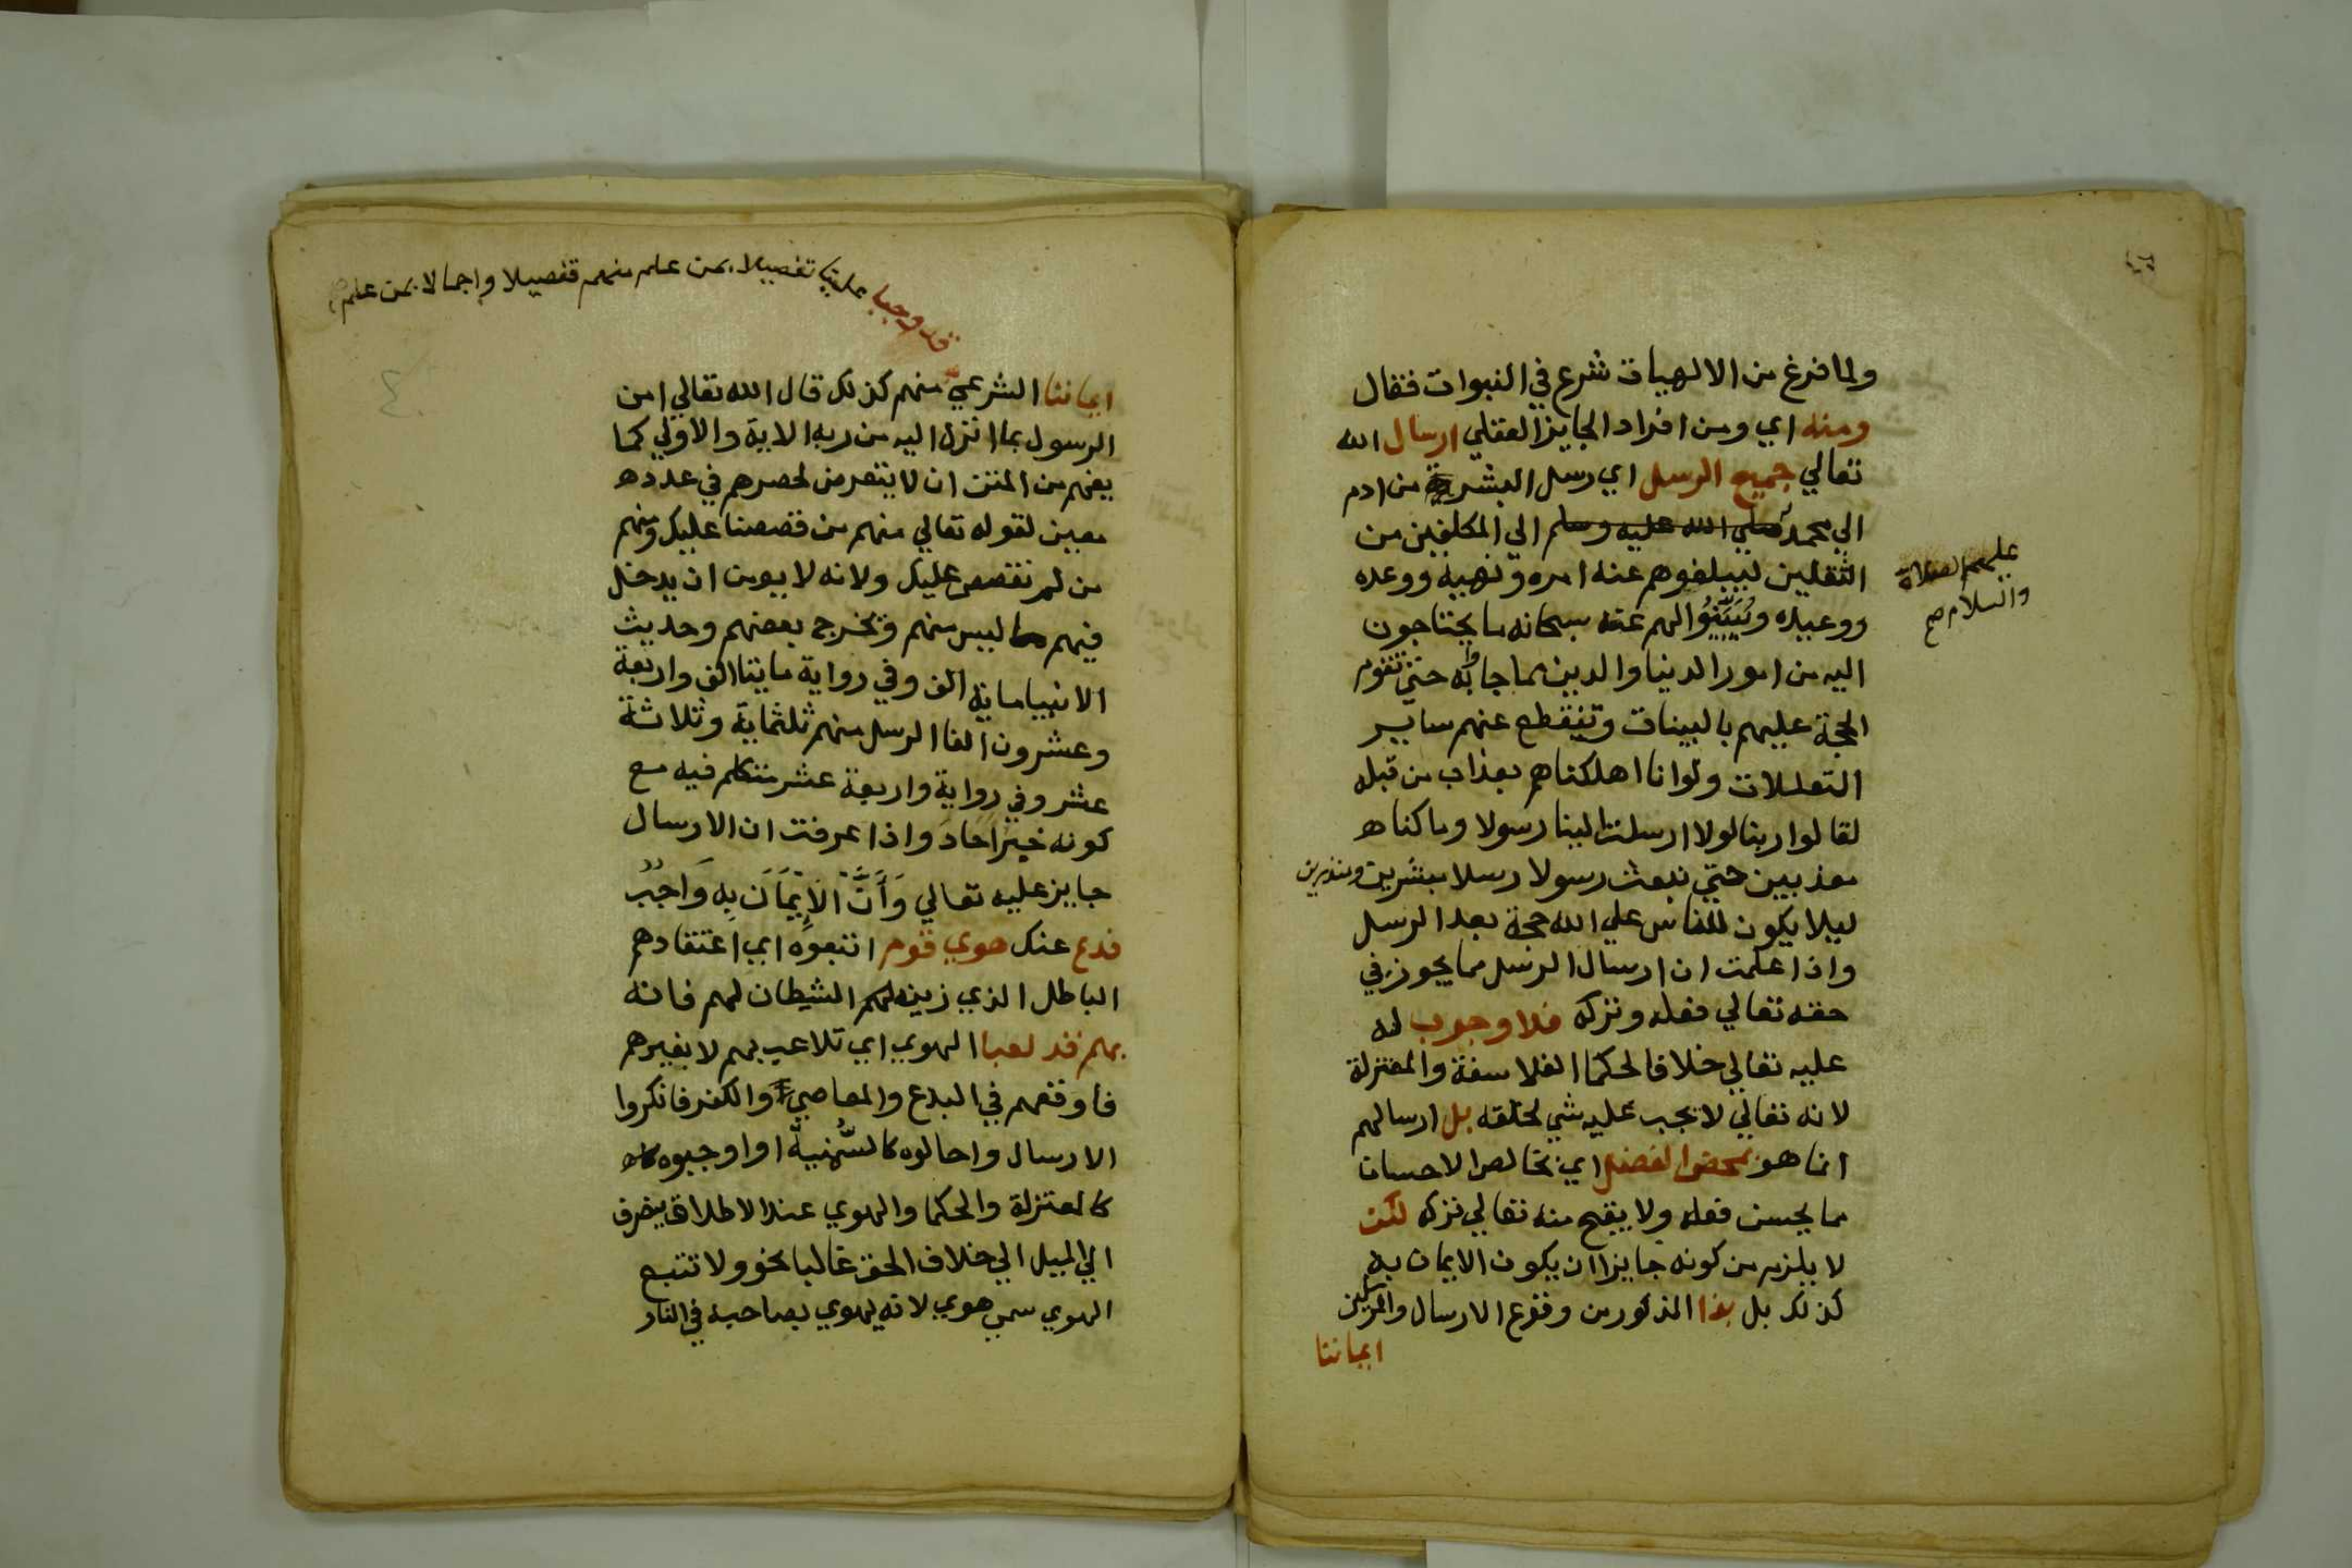 ولما فرغ من الالهيات شرع في النبوات فقال
ومنه اي ومن افراد الجايز العقلي ارسال الله
تعالي جميع الرسل اي رسل البشر من ادم
الي محمد صلي الله عليه وسلم الي المكلفين من
عليهم الصلاة
والسلام صح
الثقلين ليبلغوهم عنه امره ونهيه ووعده
ووعيده ويُبَيِّنُوا لهم عنه سبحانه ما يحتاجون
اليه من امور الدنيا والدين مما جاوا به حتي تقوم
الحجة عليهم بالبينات وتنقطع عنهم ساير
التعللات ولو انا اهلكناهم بعذاب من قبله
لقالوا ربنا لولا ارسلت الينا رسولا وما كنا
معذبين حتي نبعث رسولا رسلا مبشرين ومنذرين
ليلا يكون للناس علي الله حجة بعد الرسل
واذا علمت ان ارسال الرسل مما يجوز في
حقه تعالي فعله وتركه فلا وجوب له
عليه تعالي خلافا لحكما الفلاسفة والمعتزلة
لانه تعالي لا يجب عليه شي لخلقه بل ارسالهم
انما هو بمحض الفضل اي بخالص الاحسان
مما يحسن فعله ولا يقبح منه تعالي تركه لكن
لا يلزم من كونه جايزا ان يكون الايمان به
كذلك بل بذا المذكور من وقوع الارسال والمرسلين
ايماننا
قد وجبا علينا تفصيلا بمن علم منهم تفصيلا واجمالا بمن علم
ايماننا الشرعي منهم كذلك قال الله تعالي امن
الرسول بما انزل اليه من ربه الاية والاولي كما
يفهم من المتن ان لا يتعرض لحصرهم في عدد
معين لقوله تعالي منهم من قصصنا عليك ومنهم
من لم نقصص عليك ولانه لا يومن ان يدخل
فيهم ما ليس منهم ويخرج بعضهم وحديث
الانبيا ماية الف وفي رواية مايتا الف واربعة
وعشرون الفا الرسل منهم ثلثماية وثلاثة
عشر وفي رواية واربعة عشر متكلم فيه مع
كونه خبر احاد واذا عرفت ان الارسال
جايز عليه تعالي وَأَنَّ الْإِيْمَانَ بِهِ وَاجِبٌ
فدع عنك هوي قوم اتبعوه اي اعتقادهم
الباطل الذي زينه لهم الشيطان لهم فانه
بهم قد لعبا الهوي اي تلاعب بهم لا بغيرهم
فاوقعهم في البدع والمعاصي والكفر فانكروا
الارسال واحالوه كالسُّمنية او اوجبوه
كالمعتزلة والحكما والهوي عند الاطلاق ينصرف
الي الميل الي خلاف الحق غالبا نحو ولا تتبع
الهوي سمي هوي لانه يهوي بصاحبه في النار